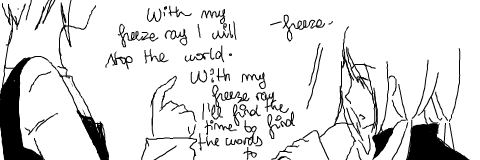 With my
freeze ray I will
stop the world.
With my
freeze ray
I'll find the
time to find
the words
to
-freeze-